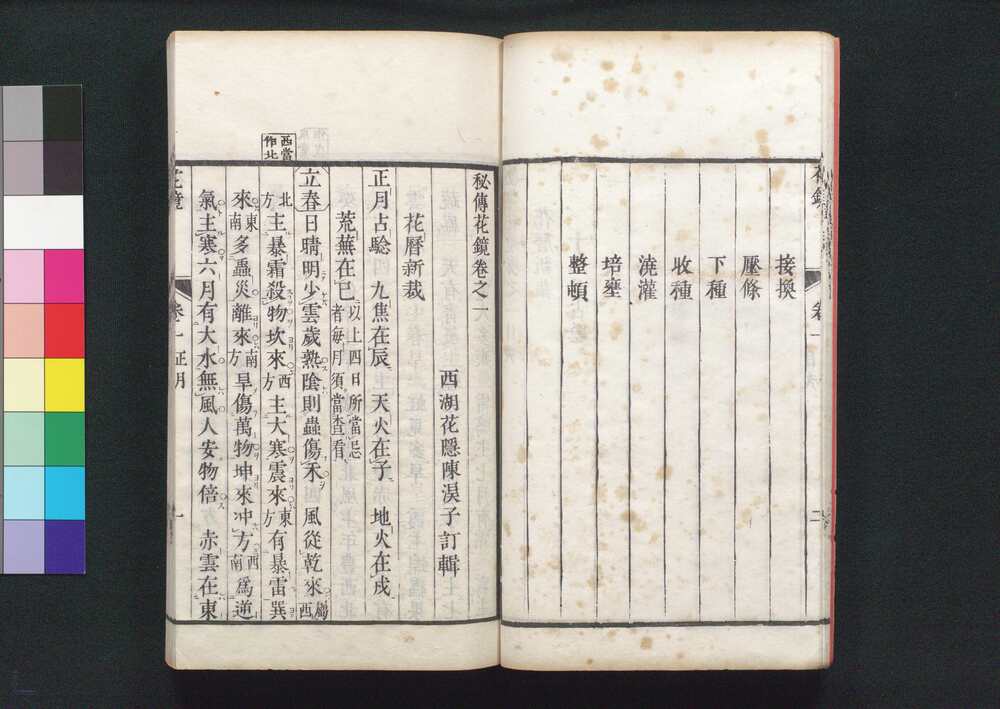 花鏡
卷一
二
接換
壓條
下種
收種
澆灌
培壅
整頓
秘傳花鏡卷之一
西湖花隱陳淏子訂輯
花曆新裁
正月占驗 九焦在辰 天火在子 地火在戌
荒蕪在巳 以上四日所當忌者每月須當查看
西當作北
立春日晴明少雲歲熟陰則蟲傷禾 風從乾來 屬西
北方 主暴霜殺物坎來 西方 主大寒震來 東方 有暴雷巽
來 東南 多蟲災離來 南方 旱傷萬物坤來 西南 冲方為逆
氣主寒六月有大水無風人安物倍 赤雲在東
花鏡
卷一 正月
一